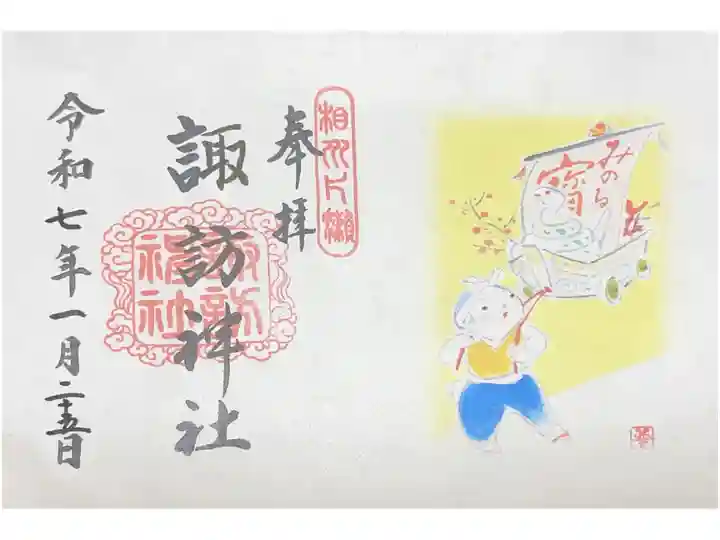 相州片瀬
奉拝
諏訪神社
諏訪
神社
令和七年一月二十五日
みのる